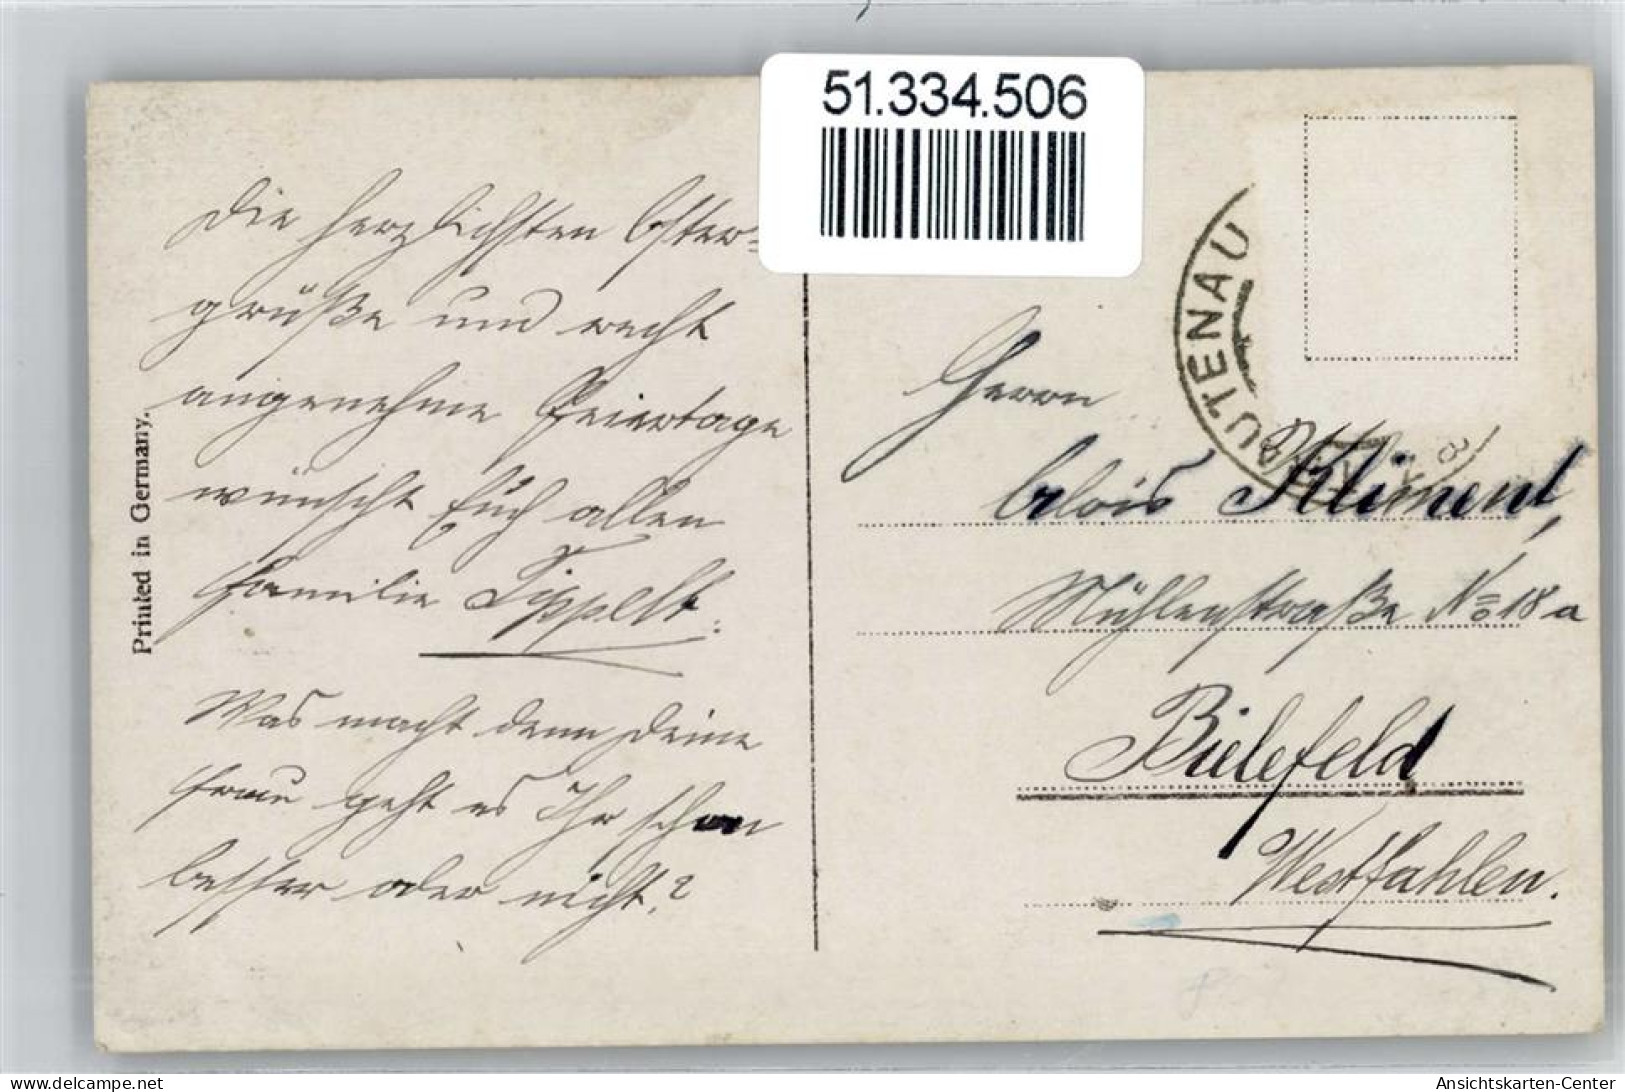 51.334.506
Die herzlichsten Oster=
grüße und recht
angenehme Feiertage
wünscht Euch allen
Familie Tippelt.
Was macht denn Deine
Frau geht es Ihr schon
besser oder nicht.?
Printed in Germany.
UTENAU
Herrn
Alois Kliment,
Mühlenstraße No 18 a
Bielefeld
Westfahlen.
Ansichtskarten-Center